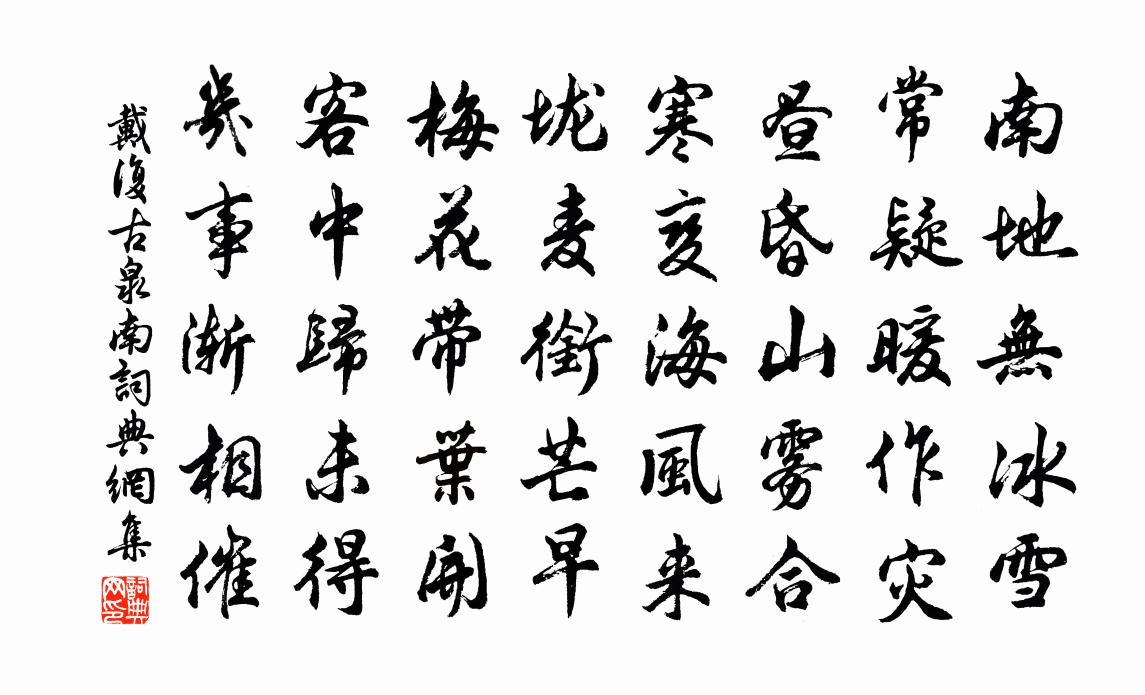 南地無冰雪
常疑暖作灾
昼昏山雾合
寒变海風来
垅麦銜芒早
梅花带葉開
客中歸未得
歲事漸相催
戴復古泉南詞典網集
詞典
网印